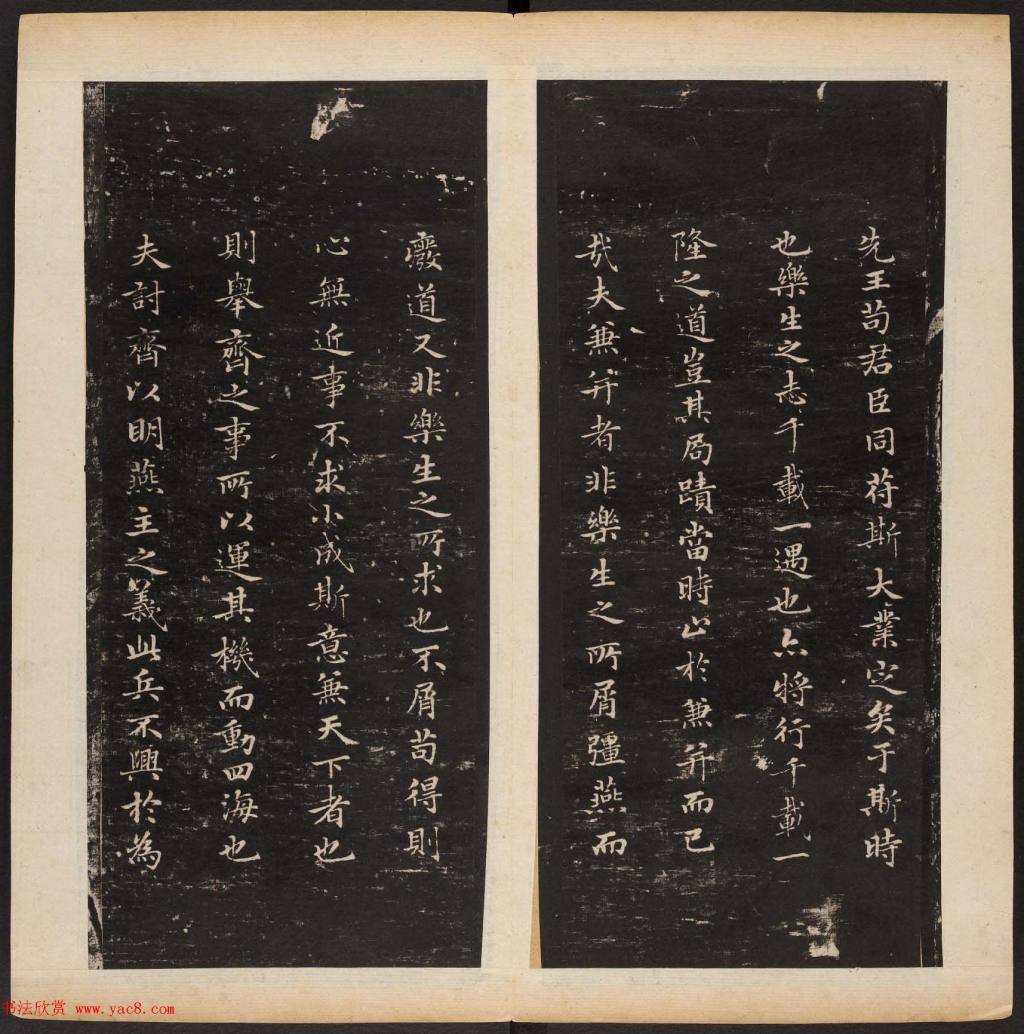 先王苟君臣同苻斯大業定矣于斯時
也樂生之志千載一遇也亦將行千載一
隆之道豈其局蹟當時止於兼并而已
哉夫兼并者非樂生之所屑彊燕而
廢道又非樂生之所求也不屑苟得則
心無近事不求小成斯意兼天下者也
則舉齊之事所以運其機而動四海也
夫討齊以明燕主之義此兵不興於為
书法欣赏 www.yac8.com